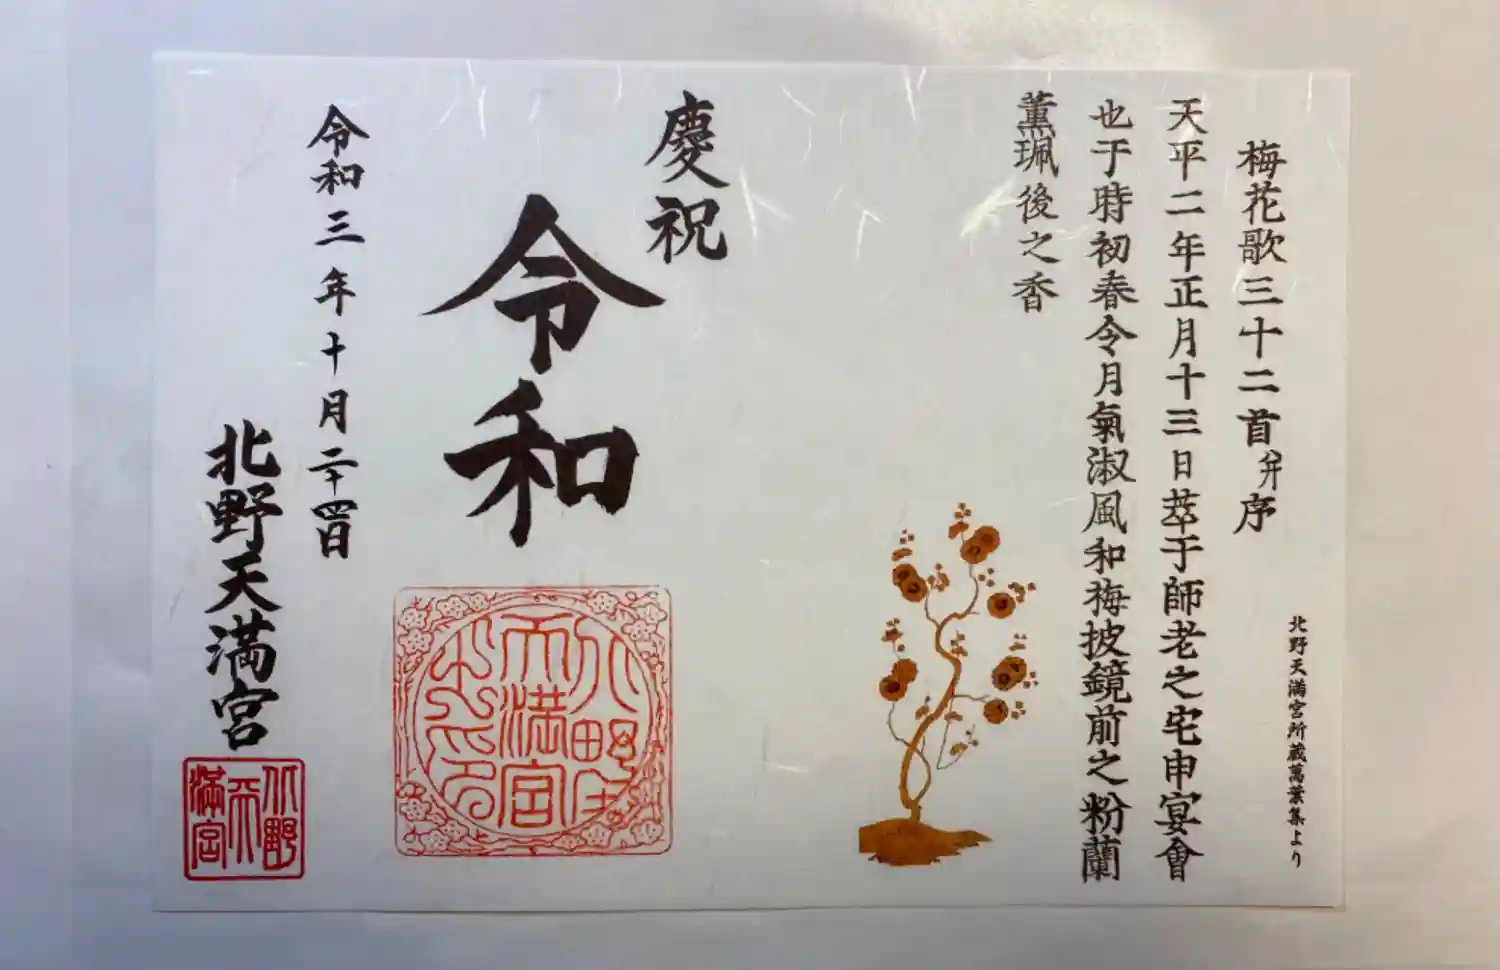 北野天満宮所蔵萬葉集より
梅花歌三十二首并序
天平二年正月十三日萃于師老之宅申宴會
也于時初春令月氣淑風和梅披鏡前之粉蘭
薫珮後之香
慶祝
令和
北野
天満宮
之印
令和三年十月二十四日
北野天満宮
北野
天
満宮